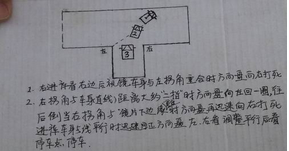 1
2
3
左
右
1. 右进库看右边后视镜车身与右拐角重合时方向盘向右打死
2. 右拐角与车身直线距离大约"一拍"时方向盘向左回一圈,往
后倒当右拐角与镜片下边 时方向盘迅速向右打死
进库车身与线平行时迅速回正方向盘,左、右看调整平行后看
停车点,停车.